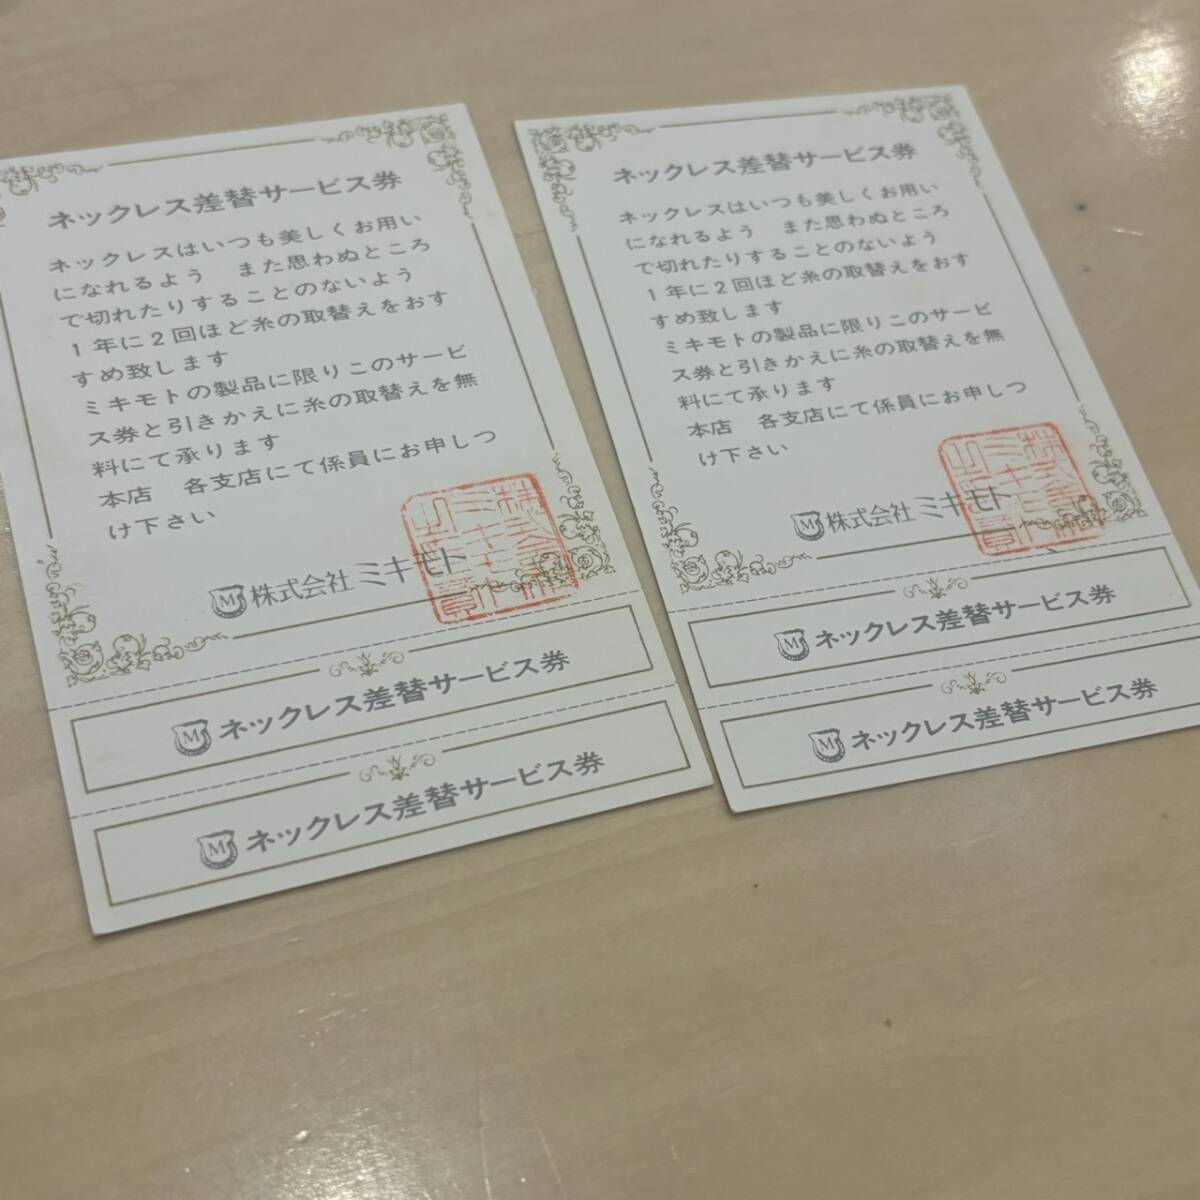 ネックレス差替サービス券
ネックレスはいつも美しくお用い
になれるよう　また思わぬところ
で切れたりすることのないよう
1年に2回ほど糸の取替えをおす
すめ致します
ミキモトの製品に限りこのサービ
ス券と引きかえに糸の取替えを無
料にて承ります
本店　各支店にて係員にお申しつ
け下さい
M 株式会社 ミキモト
M ネックレス差替サービス券
M ネックレス差替サービス券
ネックレス差替サービス券
ネックレスはいつも美しくお用い
になれるよう　また思わぬところ
で切れたりすることのないよう
1年に2回ほど糸の取替えをおす
すめ致します
ミキモトの製品に限りこのサービ
ス券と引きかえに糸の取替えを無
料にて承ります
本店　各支店にて係員にお申しつ
け下さい
M 株式会社 ミキモト
M ネックレス差替サービス券
M ネックレス差替サービス券